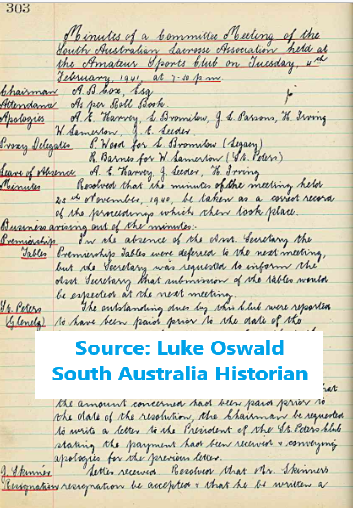 303
Minutes of a Committee Meeting of the
South Australian Lacrosse Association held at
the Amateur Sports Club on Tuesday, 4th
February, 1941, at 7-50 p.m.
Chairman A. B. Cox, Esq
Attendance As per Roll Book.
Apologies A. E. Harvey, L. Bromilow, J. L. Parsons, H. Irving
W. Lamerton, J. E. Seeder.
Proxy Delegates P. Wood for L. Bromilow (Legacy)
R. Barnes for W. Lamerton (St. Peters)
Leave of Absence A. E. Harvey, J. Seeder, H. Irving
Minutes Resolved that the minutes of the meeting held
25th November, 1940, be taken as a correct record
of the proceedings which then took place.
Business arising out of the minutes:-
Premiership In the absence of the Asst. Secretary the
Tables Premiership Tables were deferred to the next meeting,
but the Secretary was requested to inform the
Asst. Secretary that submission of the tables would
be expected at the next meeting.
St. Peters The outstanding dues by this club were reported
(Glenelg) to have been paid prior to the date of the
Source: Luke Oswald
South Australia Historian
that
the amount concerned had been paid prior to
the date of the resolution, the Chairman be requested
to write a letter to the President of the St. Peters club
stating the payment had been received & conveying
apologies for the previous letter.
J. Skinner Letter received. Resolved that Mr. Skinners
Resignation resignation be accepted & that he be written a